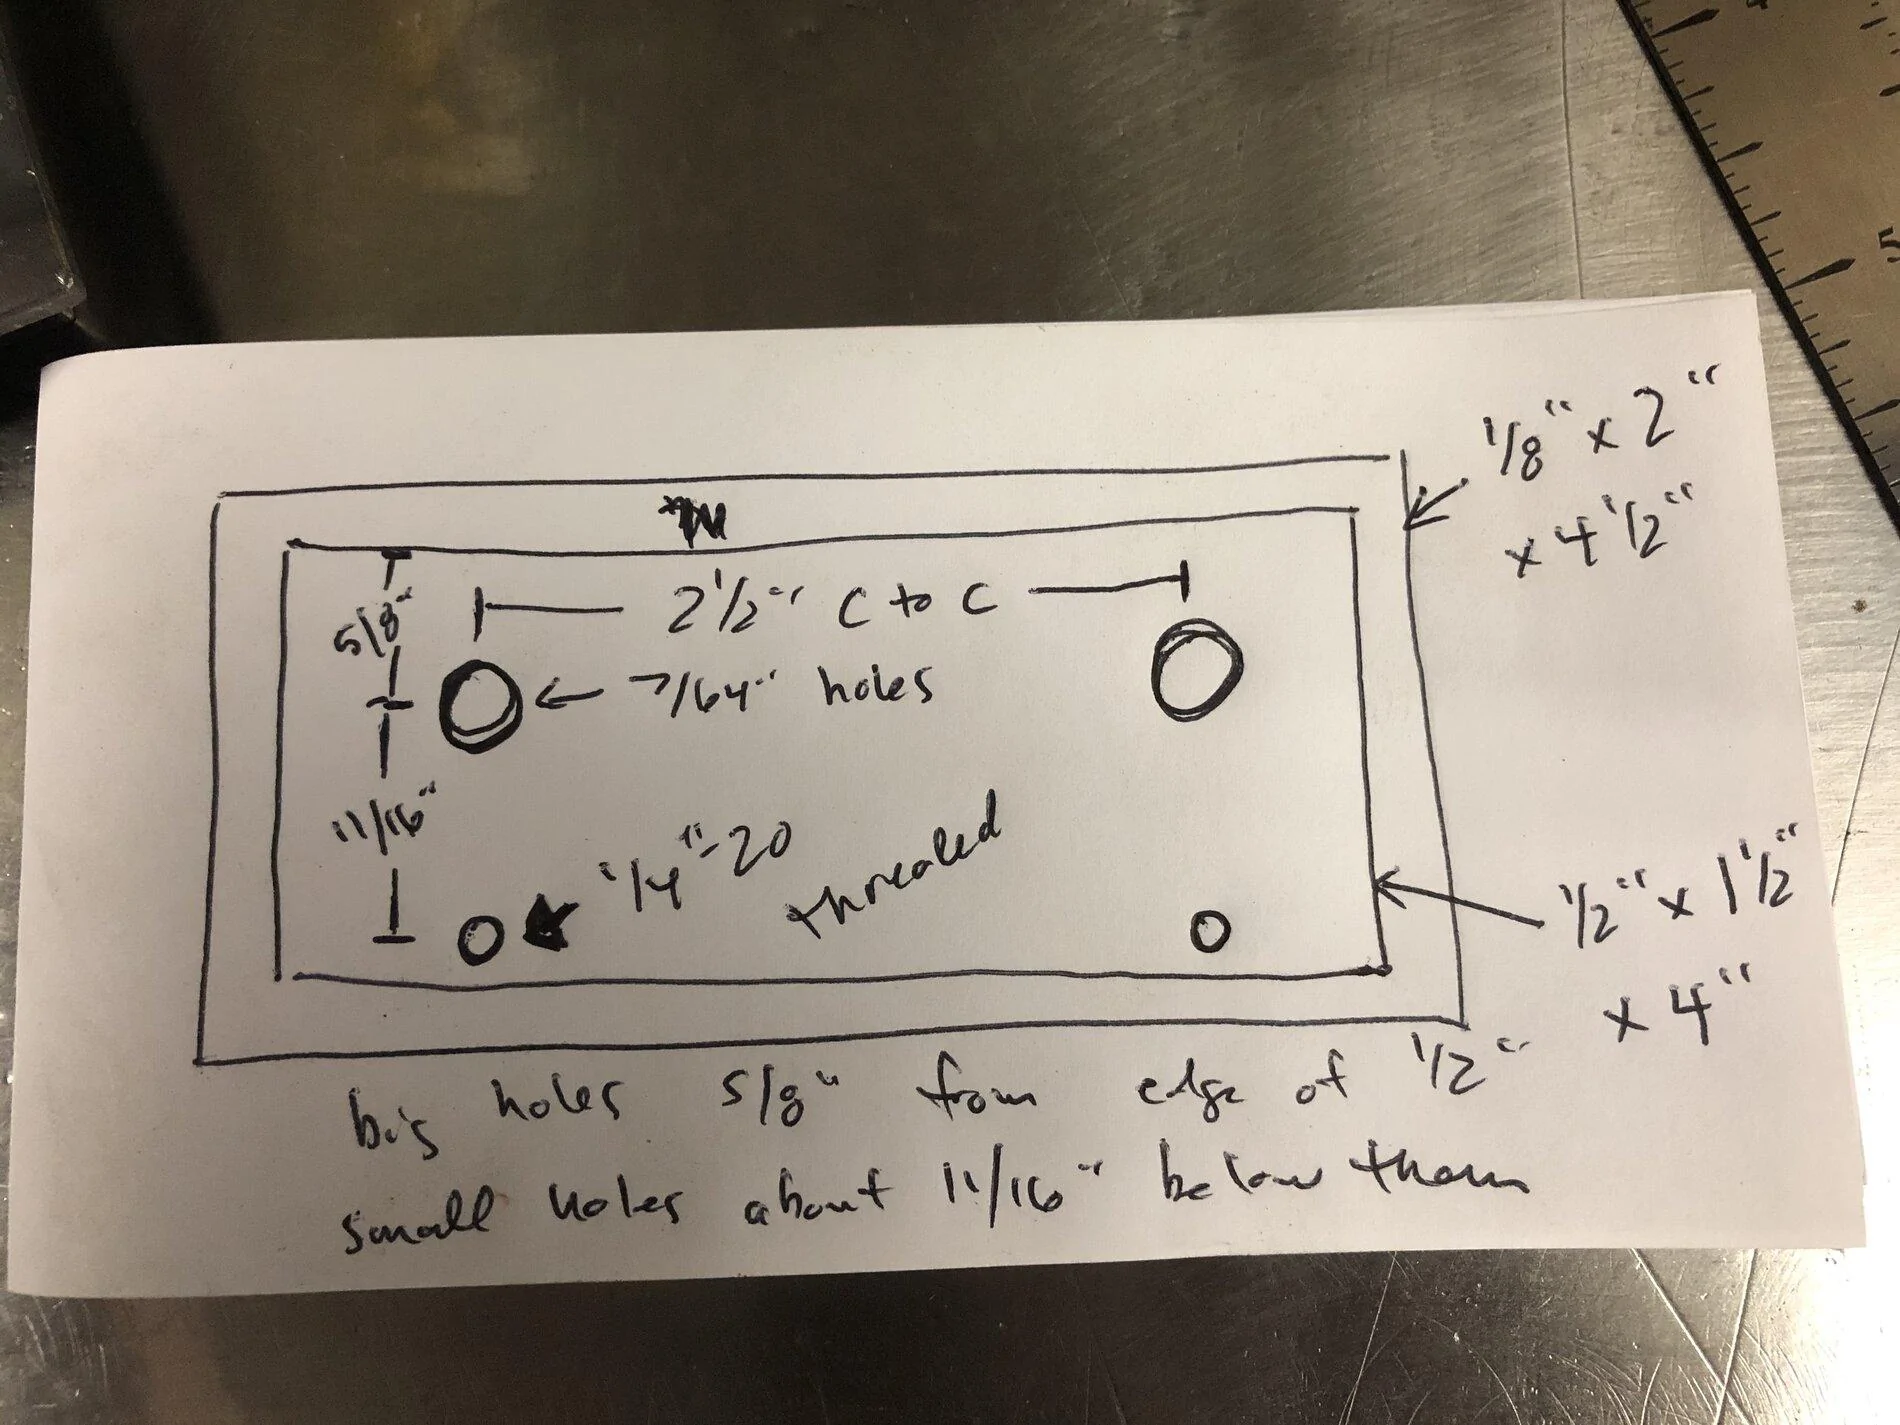 1/8" x 2"
x 4 1/2"
5/8"
2 1/2" C to C
7/64" holes
11/16"
1/4"-20
threaded
1/2" x 1 1/2"
x 4"
big holes 5/8" from edge of 1/2"
small holes about 11/16" below them
5